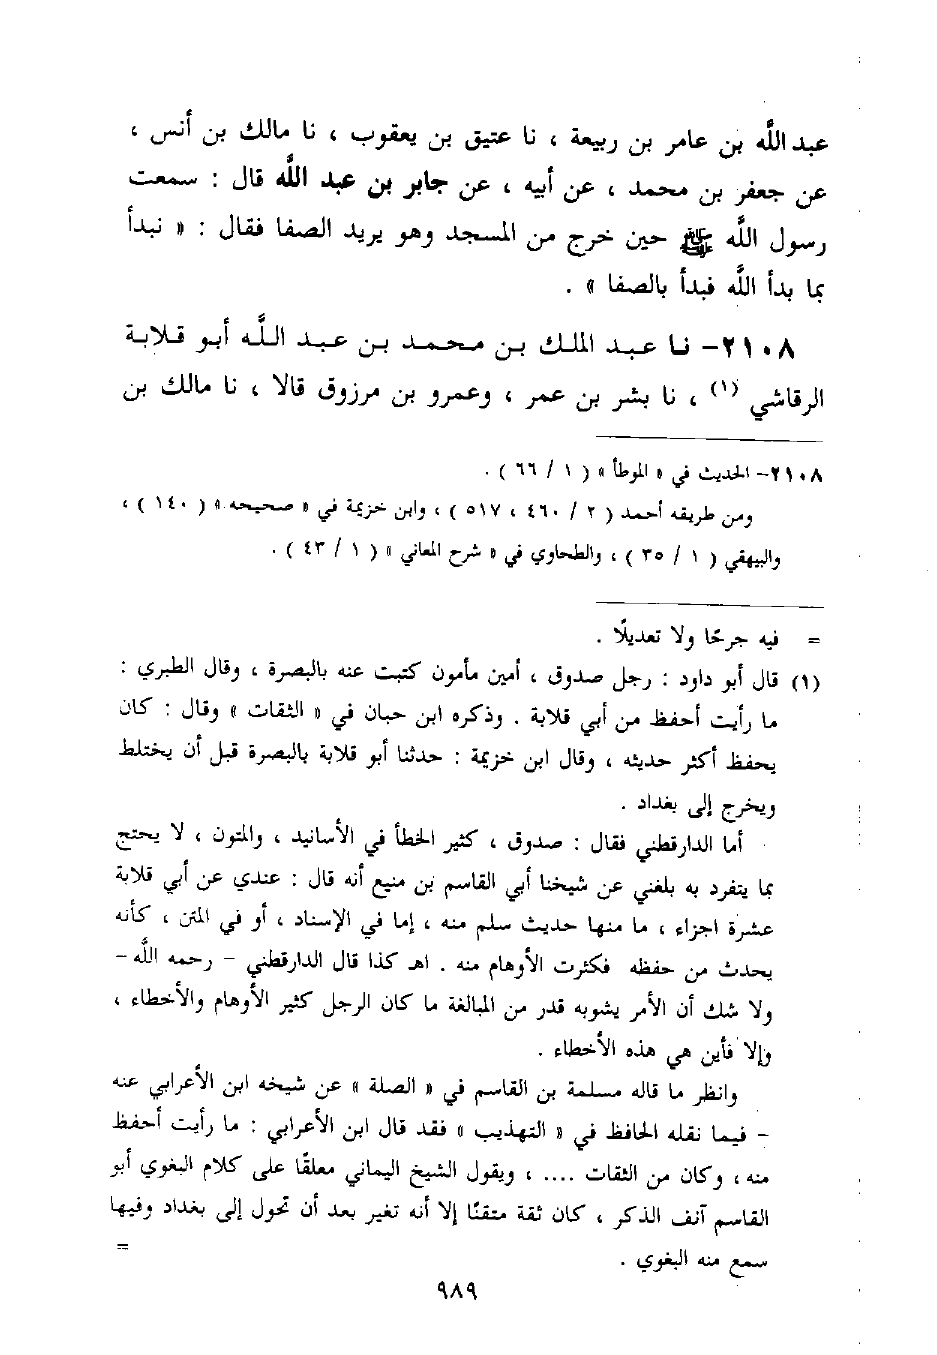 عبد اللَّه بن عامر بن ربيعة ، نا عتيق بن يعقوب ، نا مالك بن أنس ،
عن جعفر بن محمد ، عن أبيه ، عن جابر بن عبد اللَّه قال : سمعت
رسول اللَّه ﷺ حين خرج من المسجد وهو يريد الصفا فقال : « نبدأ
بما بدأ اللَّه فبدأ بالصفا » .
٢١٠٨- نا عبد الملك بن محمد بن عبد اللَّه أبو قلابة
الرقاشي (١) ، نا بشر بن عمر ، وعمرو بن مرزوق قالا ، نا مالك بن
٢١٠٨- الحديث في « الموطأ » ( ١ / ٦٦ ) .
ومن طريقه أحمد ( ٢ / ٤٦٠ ، ٥١٧ ) ، وابن خزيمة في « صحيحه » ( ١٤٠ ) ،
والبيهقي ( ١ / ٣٥ ) ، والطحاوي في « شرح المعاني » ( ١ / ٤٣ ) .
= فيه جرحًا ولا تعديلًا .
(١) قال أبو داود : رجل صدوق ، أمين مأمون كتبت عنه بالبصرة ، وقال الطبري :
ما رأيت أحفظ من أبي قلابة . وذكره ابن حبان في « الثقات » وقال : كان
يحفظ أكثر حديثه ، وقال ابن خزيمة : حدثنا أبو قلابة بالبصرة قبل أن يختلط
ويخرج إلى بغداد .
أما الدارقطني فقال : صدوق ، كثير الخطأ في الأسانيد ، والمتون ، لا يحتج
بما يتفرد به بلغني عن شيخنا أبي القاسم بن منيع أنه قال : عندي عن أبي قلابة
عشرة اجزاء ، ما منها حديث سلم منه ، إما في الإسناد ، أو في المتن ، كأنه
يحدث من حفظه فكثرت الأوهام منه . اهـ كذا قال الدارقطني - رحمه اللَّه -
ولا شك أن الأمر يشوبه قدر من المبالغة ما كان الرجل كثير الأوهام والأخطاء ،
وإلا فأين هي هذه الأخطاء .
وانظر ما قاله مسلمة بن القاسم في « الصلة » عن شيخه ابن الأعرابي عنه
- فيما نقله الحافظ في « التهذيب » فقد قال ابن الأعرابي : ما رأيت أحفظ
منه ، وكان من الثقات .... ، ويقول الشيخ اليماني معلقًا على كلام البغوي أبو
القاسم آنف الذكر ، كان ثقة متقنًا إلا أنه تغير بعد أن تحول إلى بغداد وفيها
سمع منه البغوي . =
٩٨٩